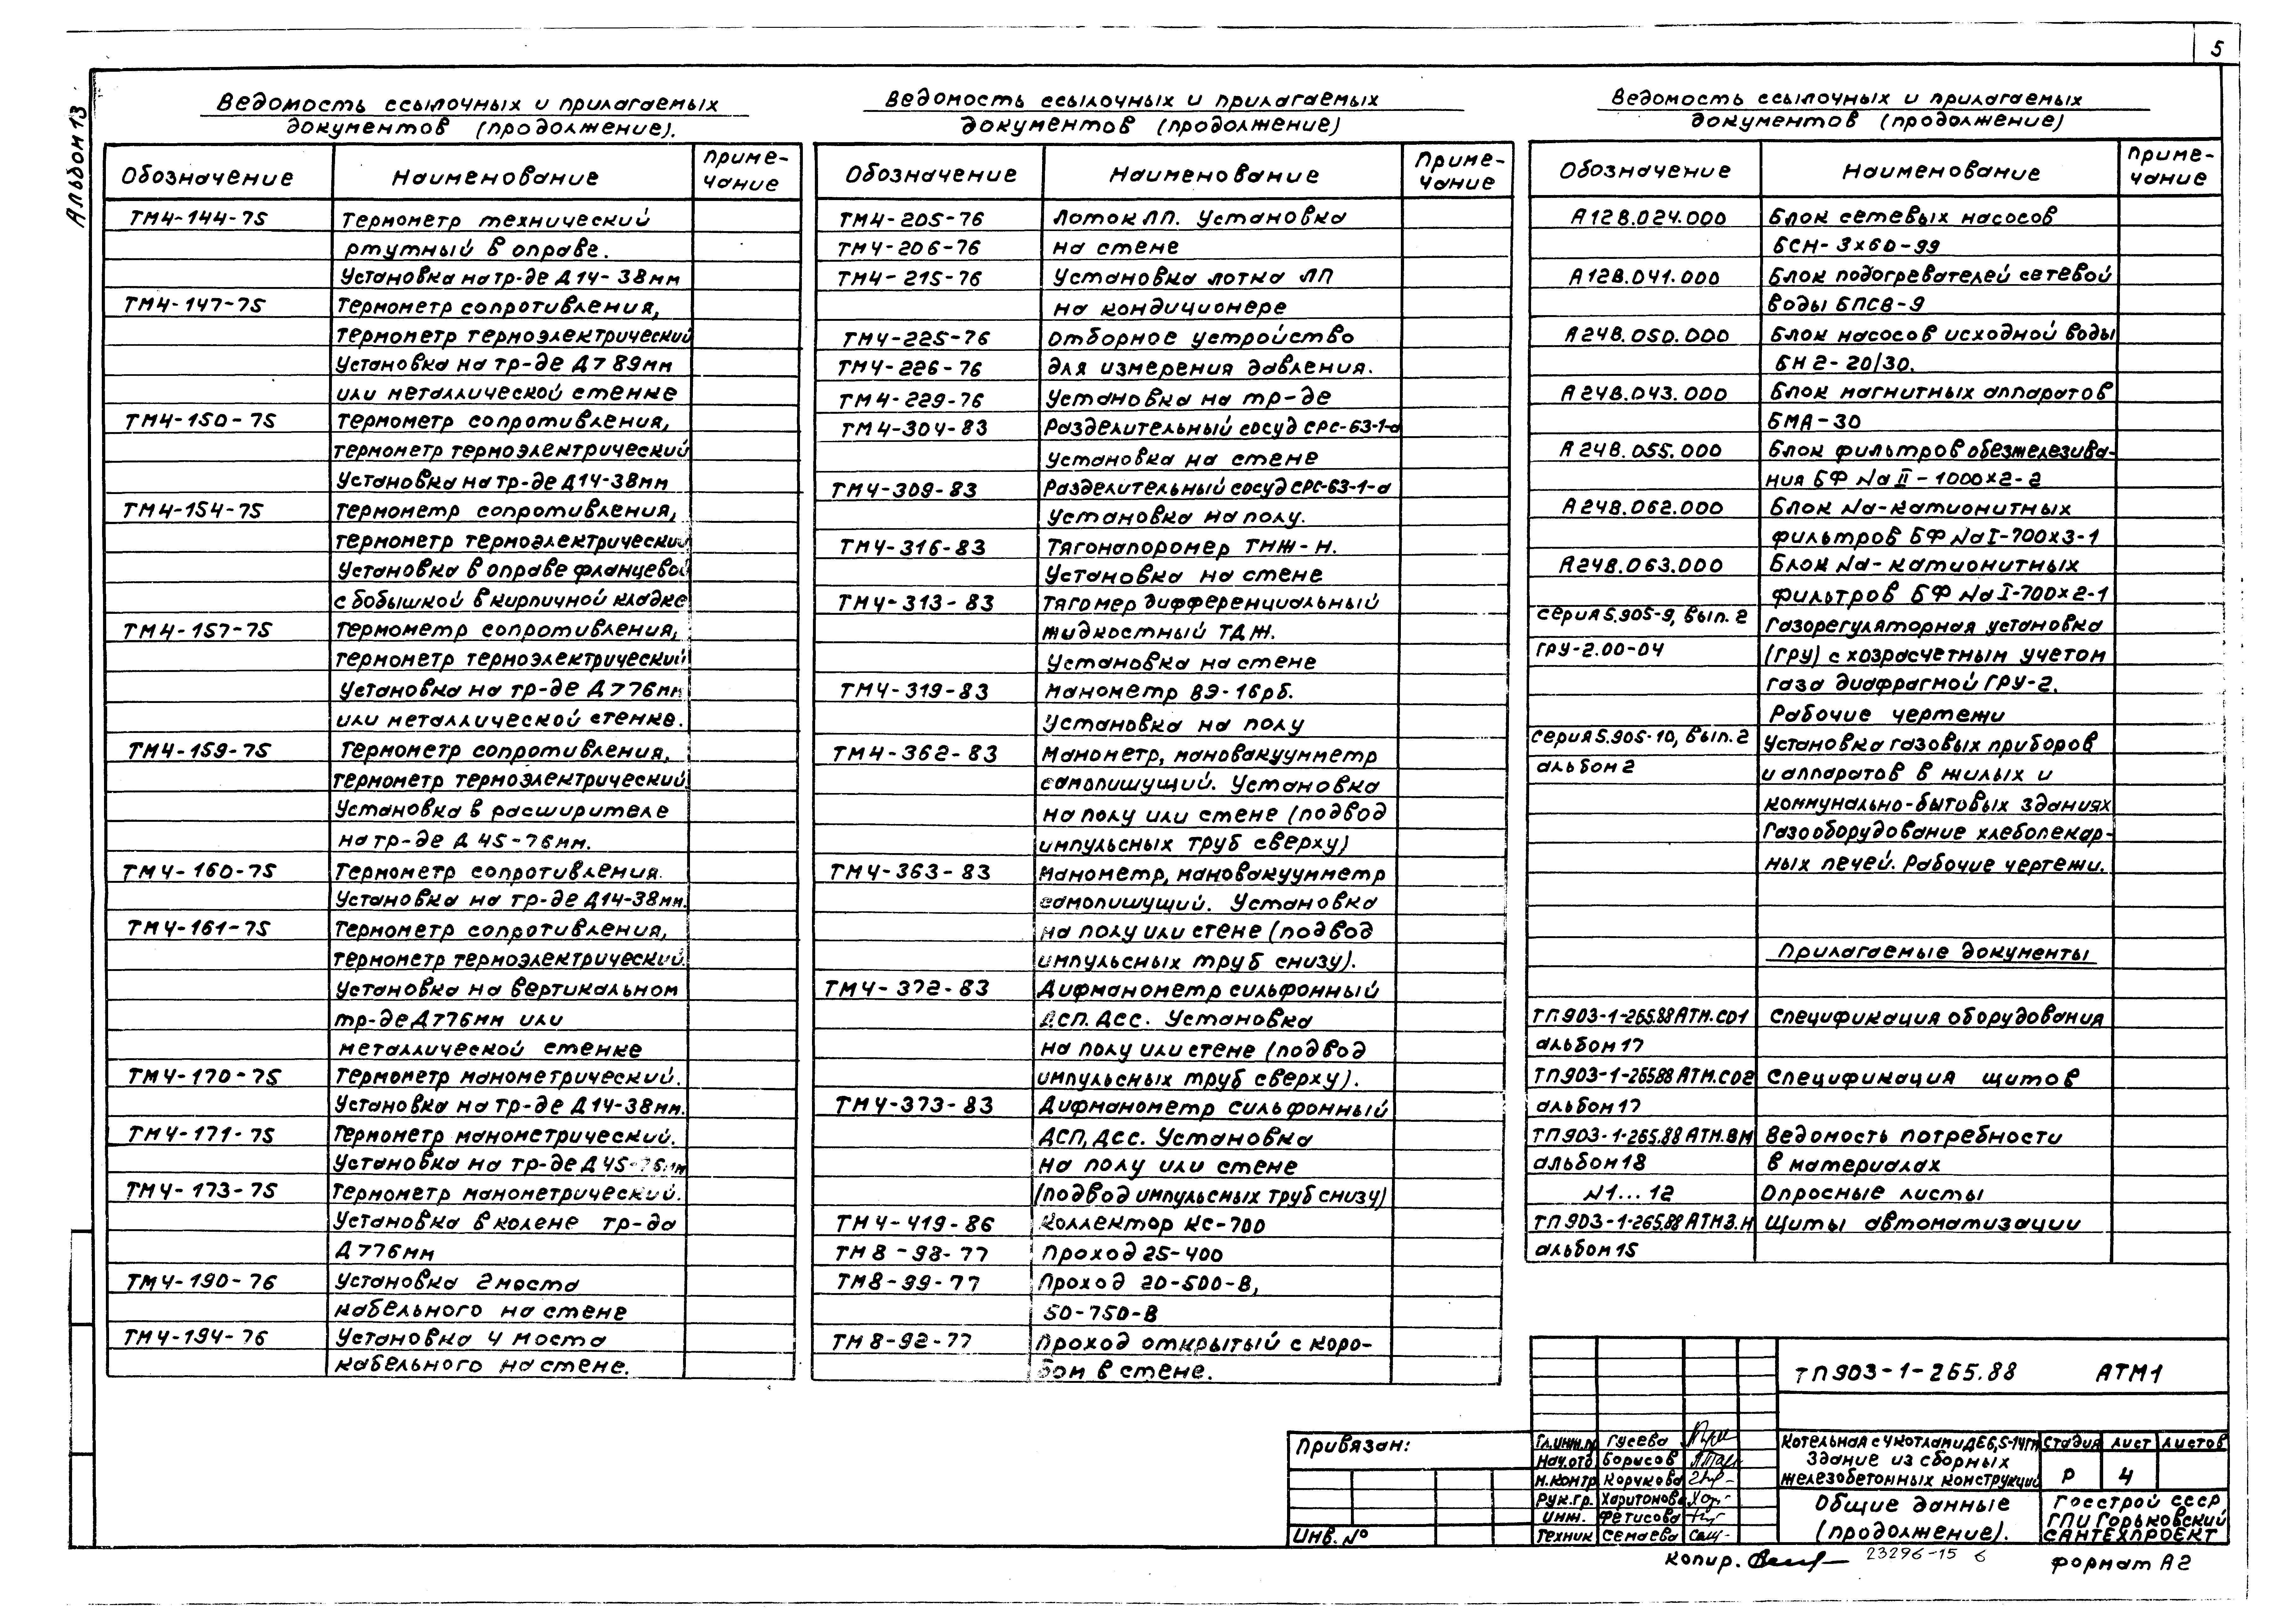 5
Альбом 13
Ведомость ссылочных и прилагаемых
документов (продолжение).
Обозначение Наименование Приме-
чание
ТМ4-144-75 Термометр технический
ртутный в оправе.
Установка на тр-де Д14-38мм
ТМ4-147-75 Термометр сопротивления,
термометр термоэлектрический
Установка на тр-де Д789мм
или металлической стенке
ТМ4-150-75 Термометр сопротивления,
термометр термоэлектрический
Установка на тр-де Д14-38мм
ТМ4-154-75 Термометр сопротивления,
термометр термоэлектрический
Установка в оправе фланцевой
с бобышкой в кирпичной кладке
ТМ4-157-75 Термометр сопротивления,
термометр термоэлектрический
Установка на тр-де Д776мм
или металлической стенке.
ТМ4-159-75 Термометр сопротивления,
термометр термоэлектрический.
Установка в расширителе
на тр-де Д 45-76мм.
ТМ4-160-75 Термометр сопротивления.
Установка на тр-де Д14-38мм.
ТМ4-161-75 Термометр сопротивления,
термометр термоэлектрический.
Установка на вертикальном
тр-де Д776мм или
металлической стенке
ТМ4-170-75 Термометр манометрический.
Установка на тр-де Д14-38мм.
ТМ4-171-75 Термометр манометрический.
Установка на тр-де Д45-76мм
ТМ4-173-75 Термометр манометрический.
Установка в колене тр-да
Д776мм
ТМ4-190-76 Установка 2 моста
кабельного на стене
ТМ4-194-76 Установка 4 моста
кабельного на стене.
Ведомость ссылочных и прилагаемых
документов (продолжение)
Обозначение Наименование Приме-
чание
ТМ4-205-76 Лоток ЛП. Установка
ТМ4-206-76 на стене
ТМ4-215-76 Установка лотка ЛП
на кондиционере
ТМ4-225-76 Отборное устройство
ТМ4-226-76 для измерения давления.
ТМ4-229-76 Установка на тр-де
ТМ4-304-83 Разделительный сосуд СРС-63-1-а
Установка на стене
ТМ4-309-83 Разделительный сосуд СРС-63-1-а
Установка на полу.
ТМ4-316-83 Тягонапоромер ТНЖ-Н.
Установка на стене
ТМ4-313-83 Тягомер дифференциальный
жидкостный ТДЖ.
Установка на стене
ТМ4-319-83 Манометр ВЭ-16рб.
Установка на полу
ТМ4-362-83 Манометр, мановакуумметр
самопишущий. Установка
на полу или стене (подвод
импульсных труб сверху)
ТМ4-363-83 Манометр, мановакуумметр
самопишущий. Установка
на полу или стене (подвод
импульсных труб снизу).
ТМ4-372-83 Дифманометр сильфонный
ДСП. ДСС. Установка
на полу или стене (подвод
импульсных труб сверху).
ТМ4-373-83 Дифманометр сильфонный
ДСП, ДСС. Установка
на полу или стене
(подвод импульсных труб снизу)
ТМ4-419-86 Коллектор КС-700
ТМ8-98-77 Проход 25-400
ТМ8-99-77 Проход 20-500-В,
50-750-В
ТМ8-92-77 Проход открытый с коро-
бом в стене.
Ведомость ссылочных и прилагаемых
документов (продолжение)
Обозначение Наименование Приме-
чание
А12В.024.000 Блок сетевых насосов
БСН-3х60-99
А12В.041.000 Блок подогревателей сетевой
воды БПСВ-9
А24В.050.000 Блок насосов исходной воды
БН2-20/30.
А24В.043.000 Блок магнитных аппаратов
БМА-30
А24В.055.000 Блок фильтров обезжелезива-
ния БФ Na II-1000х2-2
А24В.062.000 Блок Na-катионитных
фильтров БФ Na I-700х3-1
А24В.063.000 Блок Na-катионитных
фильтров БФ Na I-700х2-1
серия 5.905-9, вып. 2 Газорегуляторная установка
ГРУ-2.00-04 (ГРУ) с хозрасчетным учетом
газа диафрагмой ГРУ-2.
Рабочие чертежи
серия 5.905-10, вып. 2 Установка газовых приборов
альбом 2 и аппаратов в жилых и
коммунально-бытовых зданиях
Газооборудование хлебопекар-
ных печей. Рабочие чертежи.
Прилагаемые документы
ТП903-1-265.88 АТМ.СО1 Спецификация оборудования
альбом 17
ТП903-1-265.88 АТМ.СО2 Спецификация щитов
альбом 17
ТП903-1-265.88 АТМ.ВМ Ведомость потребности
альбом 18 в материалах
N1...12 Опросные листы
ТП903-1-265.88 АТМЗ.Н Щиты автоматизации
альбом 15
Привязан:
Инв. №
ТП903-1-265.88 АТМ1
Гл.инж.п Гусева
Нач.отд Борисов
Н.контр Корчкова
Рук.гр. Харитонова
Инж. Фетисова
Техник Семаева
Котельная с 4 котлами ДЕ6,5-14гм
Здание из сборных
железобетонных конструкций
Стадия Лист Листов
Р 4
Общие данные
(продолжение).
Госстрой СССР
ГПИ Горьковский
САНТЕХПРОЕКТ
Копир. 23296-15 6
Формат А2